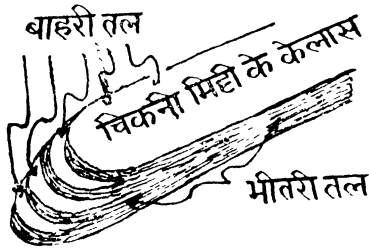 बाहरी तल
चिकनी मिट्टी के केलास
भीतरी तल